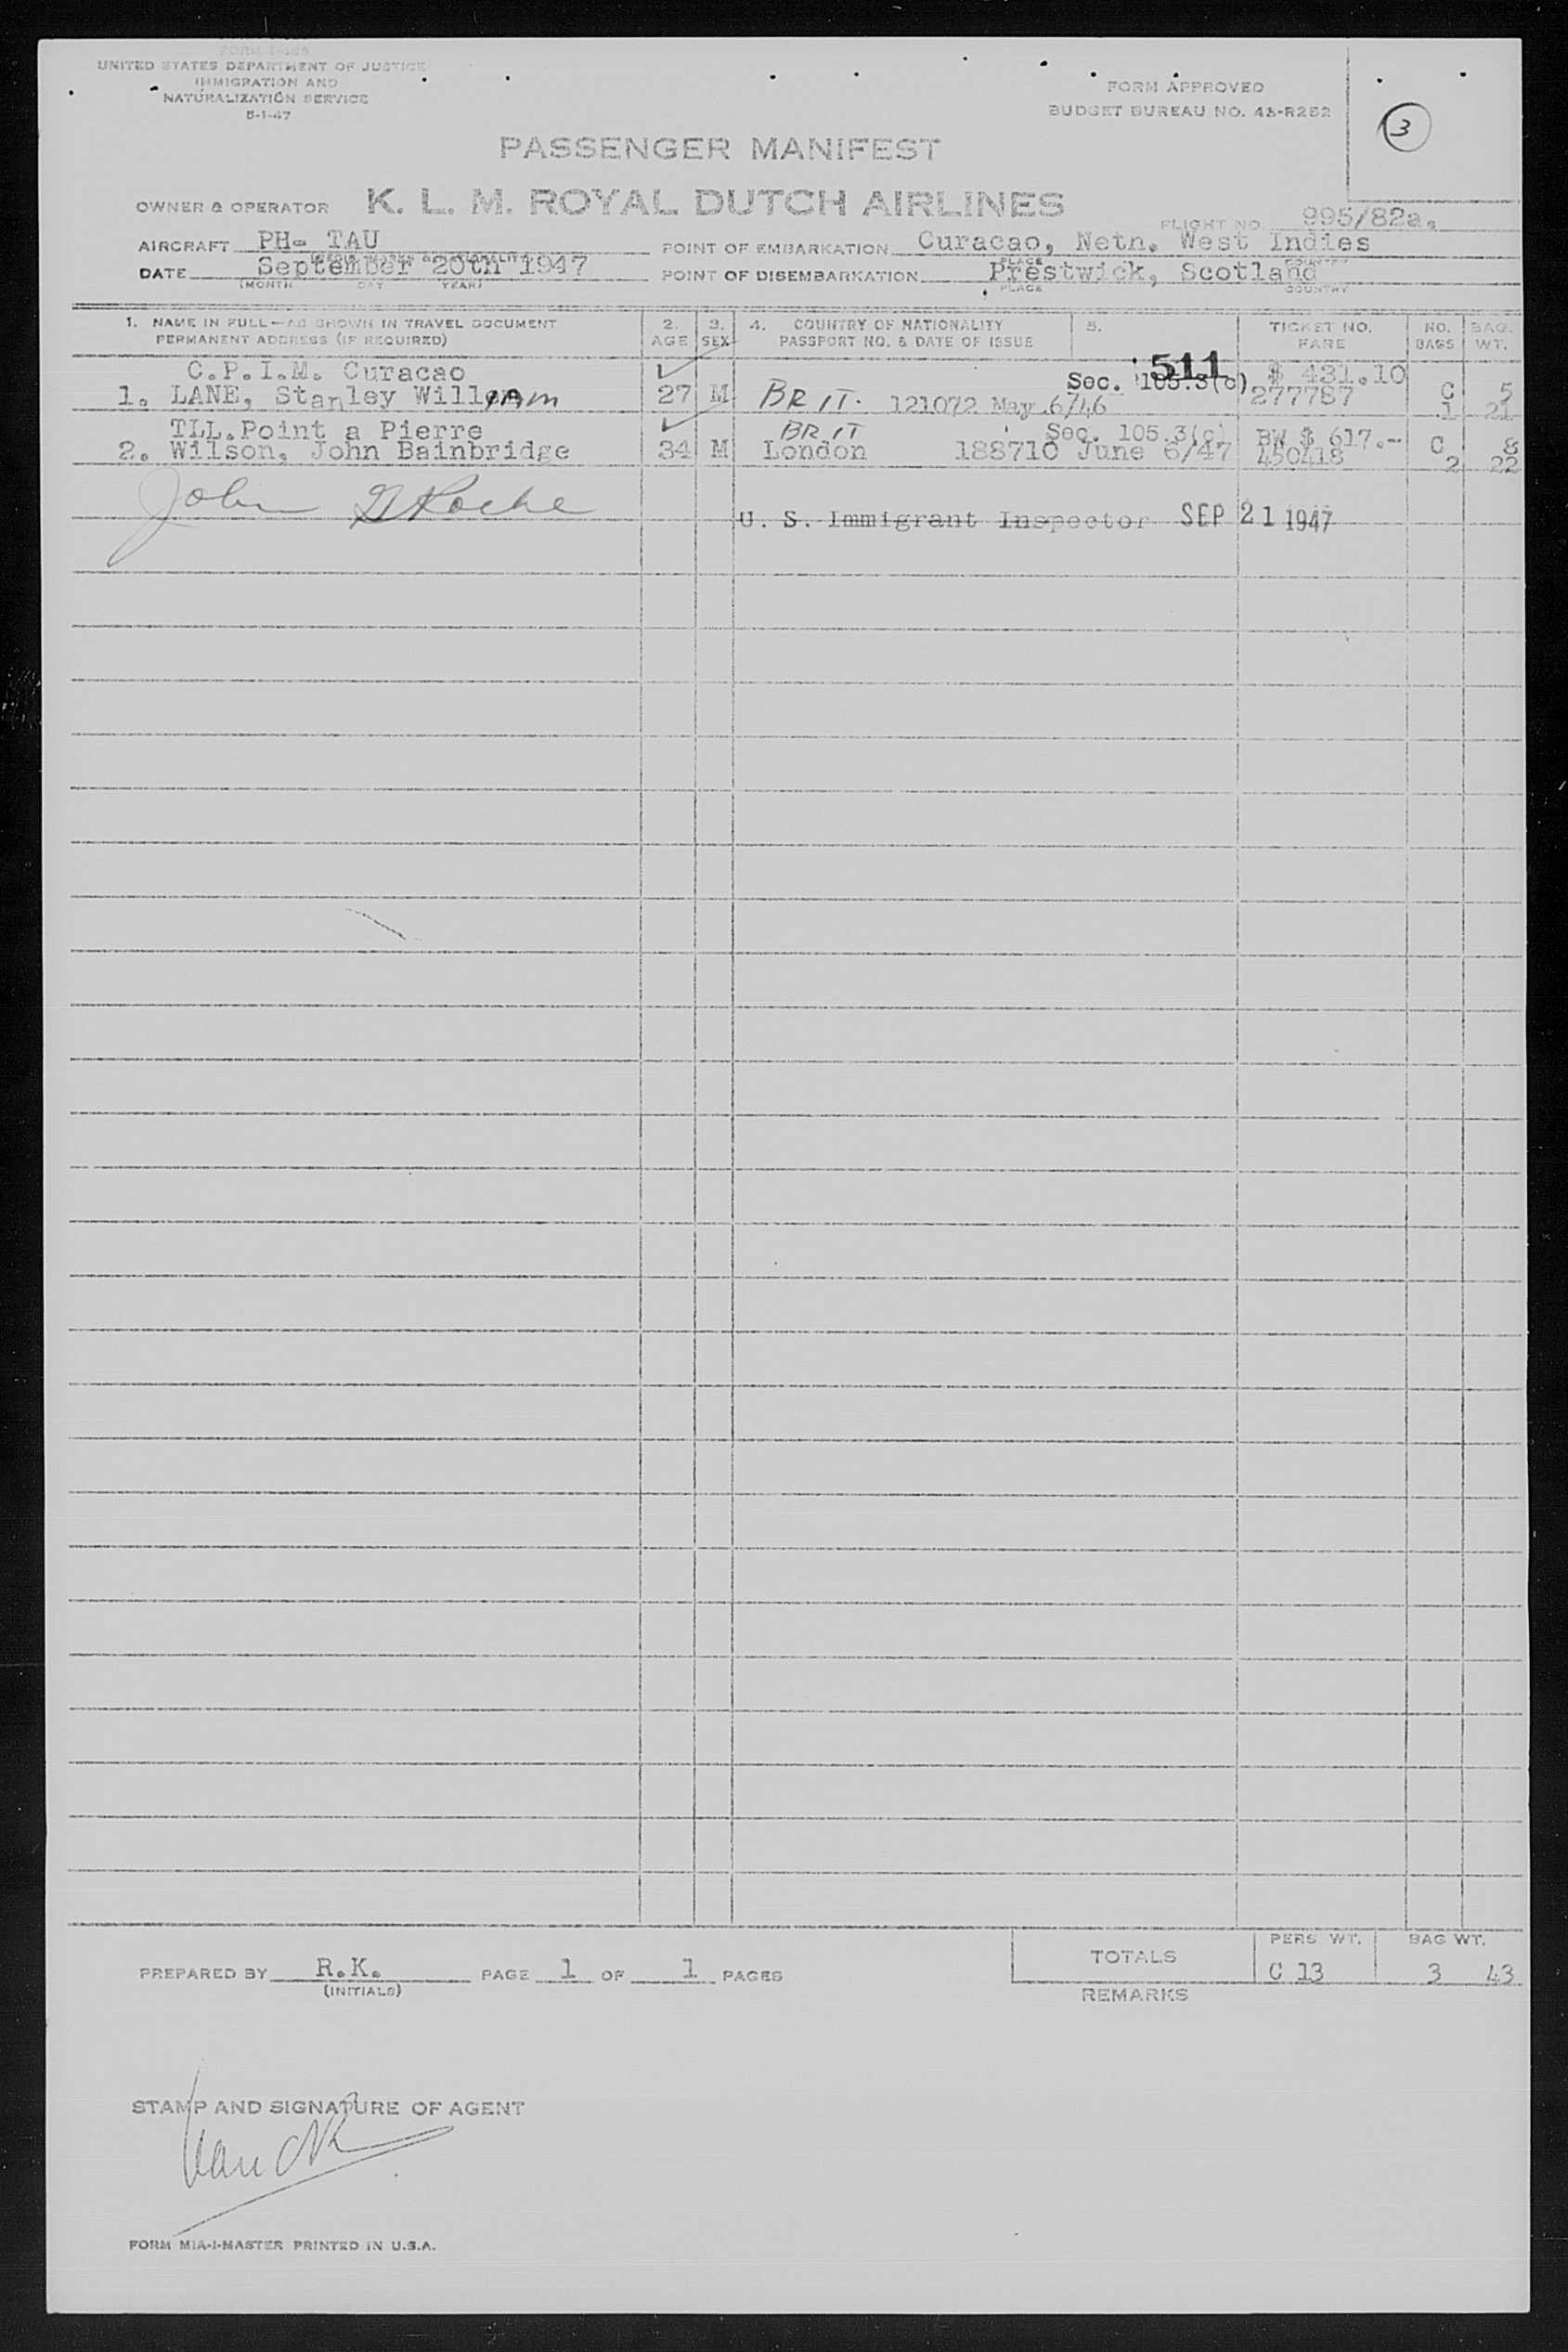 FORM I-466
UNITED STATES DEPARTMENT OF JUSTICE
IMMIGRATION AND
NATURALIZATION SERVICE
5-1-47
FORM APPROVED
BUDGET BUREAU NO. 43-R252
3
PASSENGER MANIFEST
OWNER & OPERATOR K. L. M. ROYAL DUTCH AIRLINES
FLIGHT NO. 995/82a.
AIRCRAFT PH- TAU POINT OF EMBARKATION Curacao, Neth. West Indies
PLACE COUNTRY
DATE September 20th 1947 POINT OF DISEMBARKATION Prestwick, Scotland
(MONTH DAY YEAR) PLACE COUNTRY
1. NAME IN FULL—AS SHOWN IN TRAVEL DOCUMENT 2. 3. 4. COUNTRY OF NATIONALITY 5. TICKET NO. NO. BAG.
PERMANENT ADDRESS (IF REQUIRED) AGE SEX PASSPORT NO. & DATE OF ISSUE FARE BAGS WT.
C.P.I.M. Curacao 511 $ 431.10
Sec. 105.3(c)
1. LANE, Stanley William 27 M BRIT. 121072 May 6/46 277787 C 5
1 21
TLL.Point a Pierre BRIT Sec. 105.3(c) BW $ 617.-
2. Wilson, John Bainbridge 34 M London 188710 June 6/47 450418 C 8
2 22
John Roche
U. S. Immigrant Inspector SEP 21 1947
PERS WT. BAG WT.
TOTALS C 13 3 43
PREPARED BY R.K. PAGE 1 OF 1 PAGES
(INITIALS)
REMARKS
STAMP AND SIGNATURE OF AGENT
FORM MIA-1-MASTER PRINTED IN U.S.A.